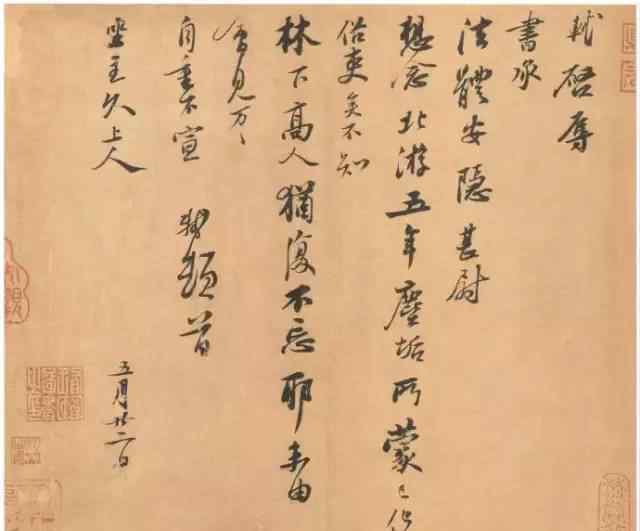 軾啓辱
書承
法體安隱甚尉
想念北游五年塵垢所蒙已化
俗吏矣不知
林下高人猶復不忘耶未由
會見万〻
自重不宣 軾頓首
坐主久上人
五月廿二日